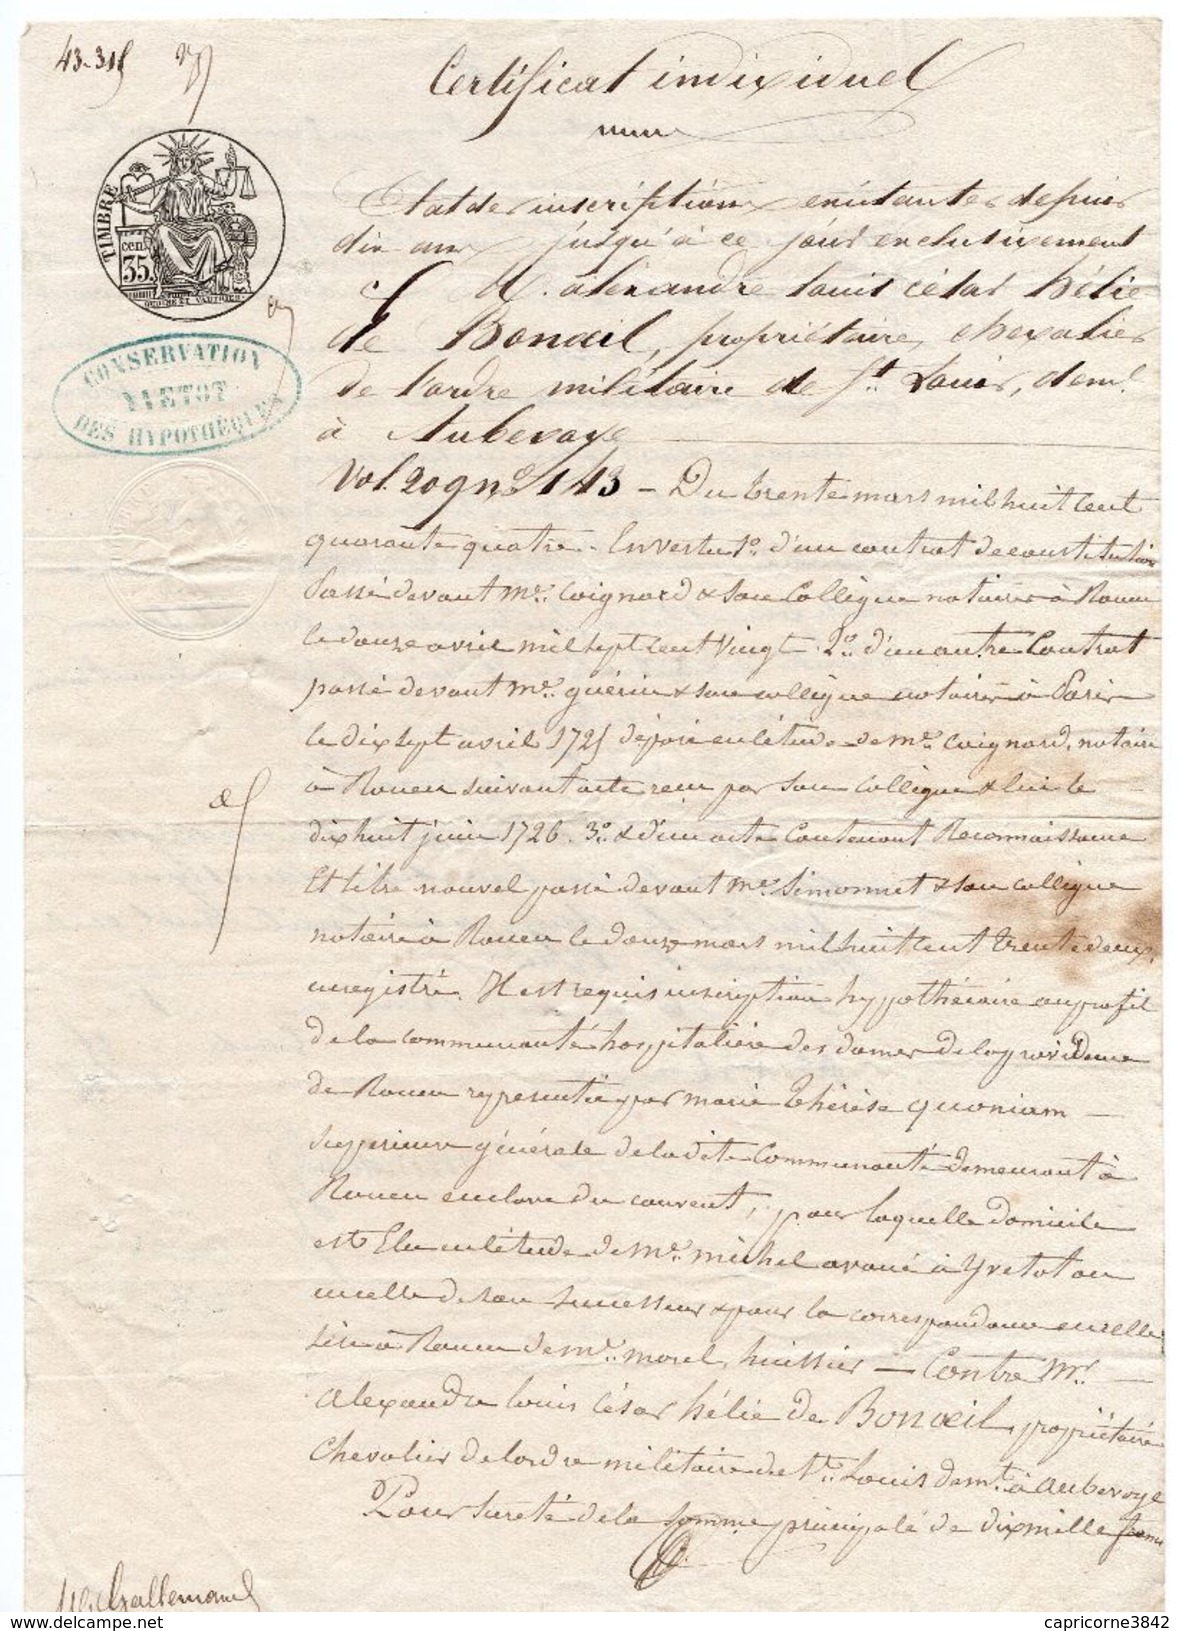 43-315
Certificat individuel
TIMBRE
cen.
35.
CONSERVATION
YVETOT
DES HYPOTHÈQUES
Etat des inscriptions existantes depuis
dix ans jusqu'à ce jour exclusivement
M. Alexandre Louis César Hélie
de Bonœil, propriétaire, chevalier
de l'ordre militaire de St. Louis, demt.
à Aubevoye
Vol. 209 no. 143 - Du trente mars mil huit cent
quarante quatre. En vertu 1o. d'un contrat de constitution
passé devant Me. Coignard & son collègue notaires à Rouen
le douze avril mil sept cent vingt. 2o. d'un autre Contrat
passé devant Me. guérin & son collègue notaires à Paris
le dix sept avril 1725 déposé en l'étude de Me. Coignard, notaire
à Rouen suivant acte reçu par son collègue & lui le
dix huit juin 1726. 3o. & d'un acte Contenant Reconnaissance
Et titre nouvel passé devant Me. Simonnet & son collègue
notaire à Rouen le douze mars mil huit cent trente deux,
enregistré. Il est requis inscription hypothécaire au profit
de la communauté hospitalière des dames de la providence
de Rouen représentée par marie thérèse quoniam
supérieure générale de la dite Communauté demeurant à
Rouen enclave du couvent, pour laquelle domicile
est Elu en l'étude de Me. michel avoué à Yvetot ou
en celle de son successeur & pour la correspondance en celle
sise à Rouen de Me. morel, huissier - Contre Mr.
Alexandre Louis César hélie de Bonœil, propriétaire
Chevalier de l'ordre militaire de St. Louis demt. à Aubevoye
Pour sureté de la somme principale de dix mille francs
Lallemand
capricorne3842
www.delcampe.net